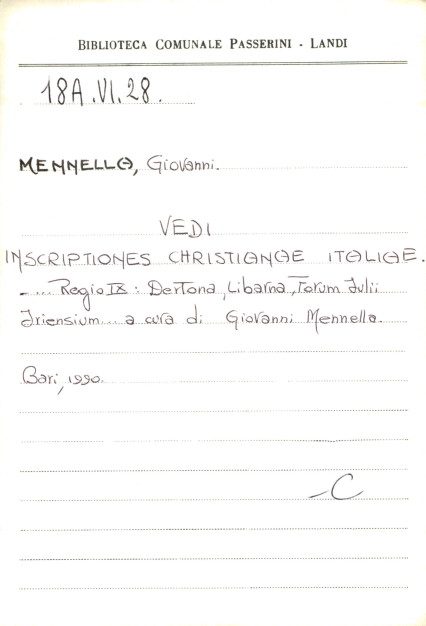 BIBLIOTECA COMUNALE PASSERINI - LANDI
18A.VI.28.
MENNELLA, Giovanni.
VEDI
INSCRIPTIONES CHRISTIANAE ITALIAE.
-... Regio IX: Dertona, Libarna, Forum Iulii
Iriensium... a cura di Giovanni Mennella.
Bari, 1990.
-C